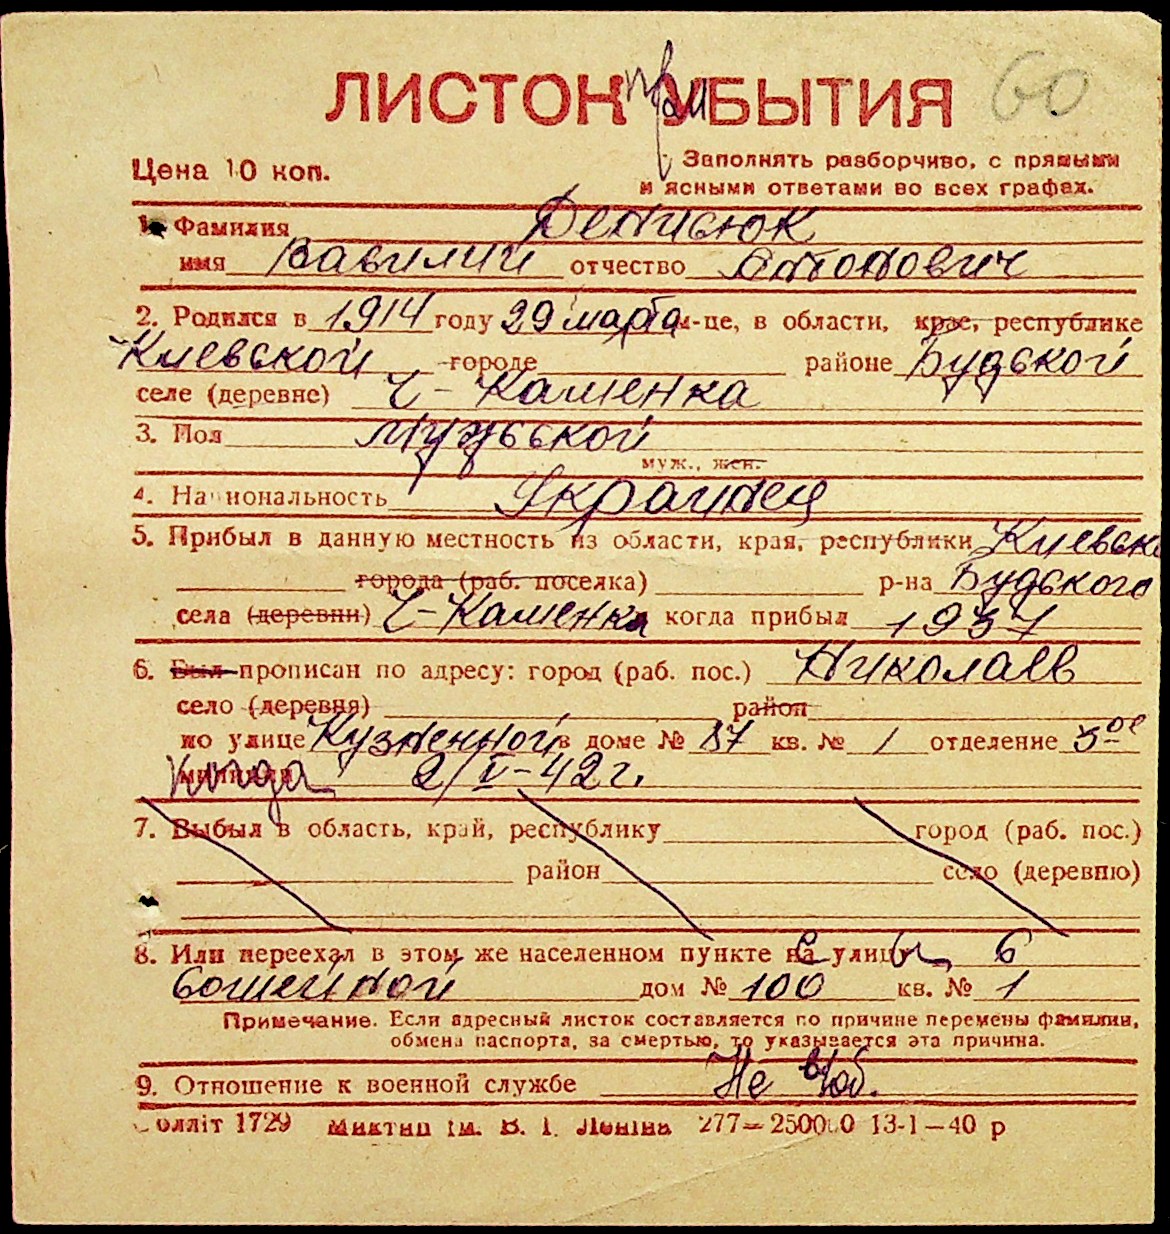 ЛИСТОК при УБЫТИЯ 60
Цена 10 коп.
Заполнять разборчиво, с прямыми
и ясными ответами во всех графах.
1. Фамилия Денисюк
имя Василий отчество Антонович
2. Родился в 1914 году 29 марта м-це, в области, крае, республике
Киевской городе районе Будской
селе (деревне) Ч-Каменка
3. Пол Мужской
муж., жен.
4. Национальность Украинец
5. Прибыл в данную местность из области, края, республики Киевск
города (раб. поселка) р-на Будского
села (деревни) Ч-Каменка когда прибыл 1937
6. Был прописан по адресу: город (раб. пос.) Николаев
село (деревня) район
по улице Кузненной в доме № 87 кв. № 1 отделение 5ое
милиции когда 2/V-42 г.
7. Выбыл в область, край, республику город (раб. пос.)
район село (деревню)
8. Или переехал в этом же населенном пункте с улицы 6
дом № 100 кв. № 1
Примечание. Если адресный листок составляется по причине перемены фамилии,
обмена паспорта, за смертью, то указывается эта причина.
9. Отношение к военной службе Не воб.
Облліт 1729 Миктип ім. В. І. Леніна 277—250000 13-1—40 р